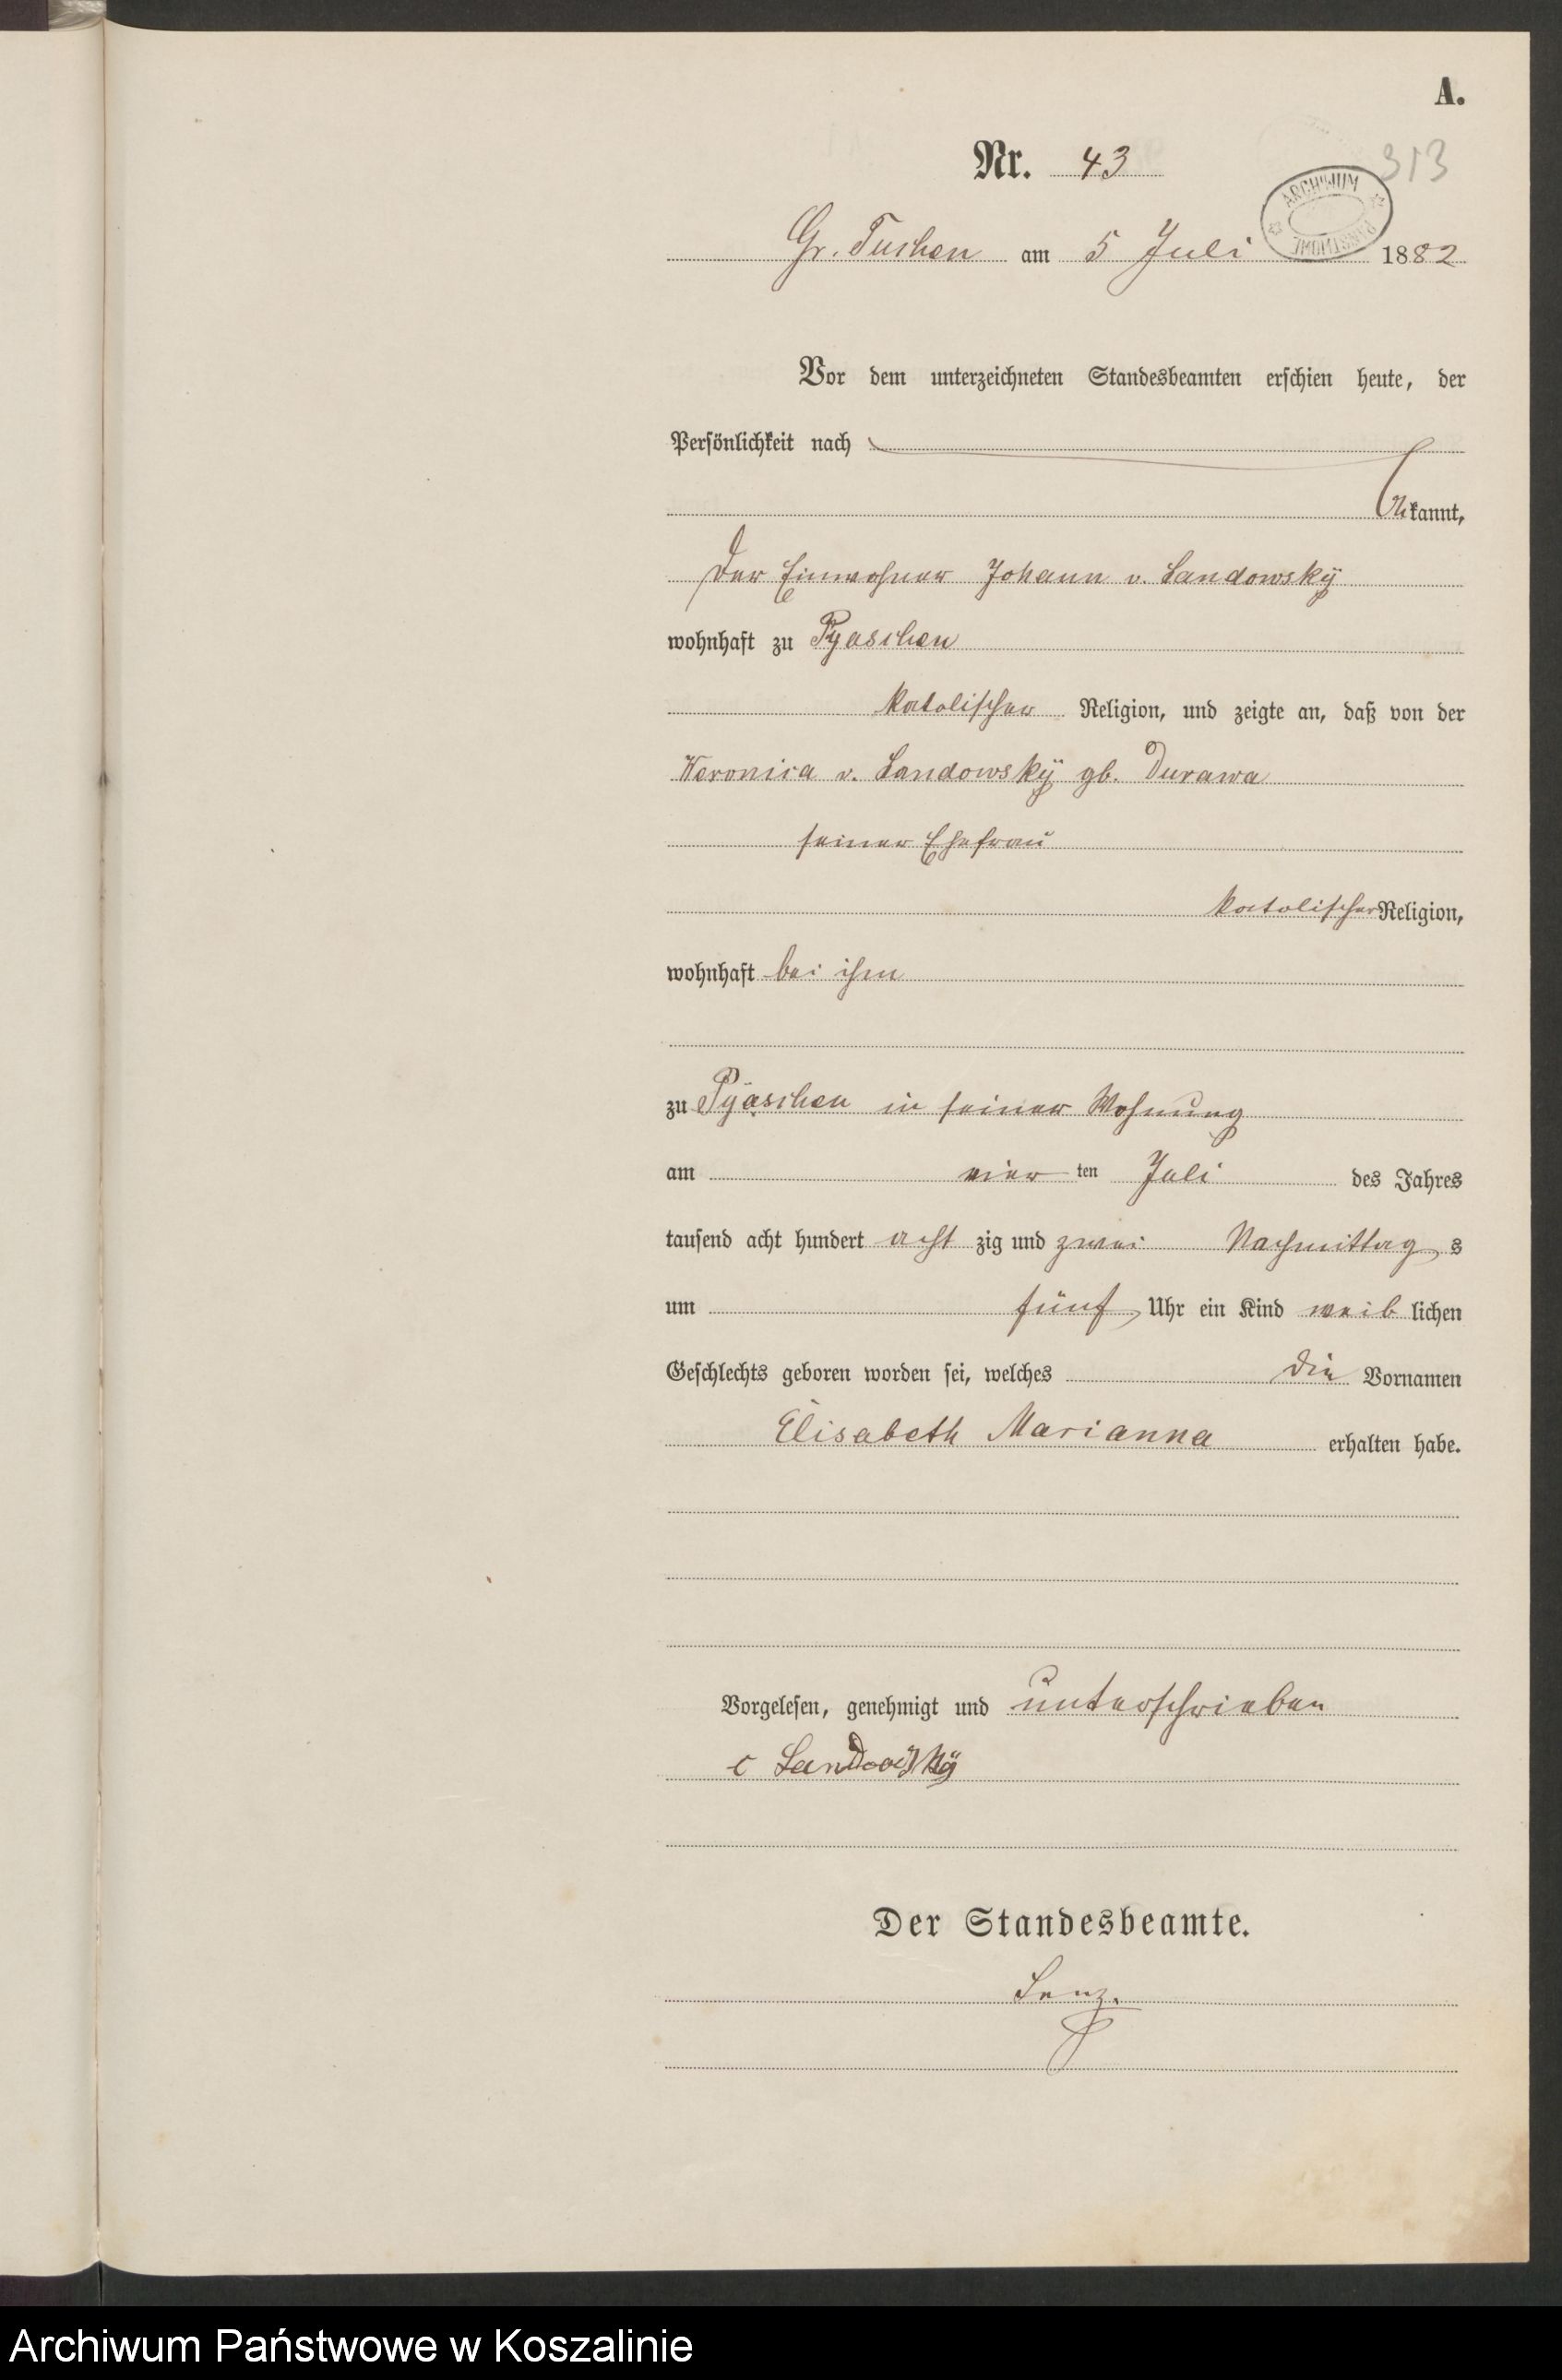 A.
Nr. 43
313
ARCHIWUM PAŃSTWOWE
Gr. Tuchen am 5 Juli 1882
Vor dem unterzeichneten Standesbeamten erschien heute, der
Persönlichkeit nach
kannt,
Der Einwohner Johann v. Landowskÿ
wohnhaft zu Pyaschen
katolischer Religion, und zeigte an, daß von der
Veronica v. Landowskÿ gb. Durawa
seiner Ehefrau
katolischer Religion,
wohnhaft bei ihm
zu Pÿaschen in seiner Wohnung
am vier ten Juli des Jahres
tausend acht hundert acht zig und zwei Nachmittag s
um fünf Uhr ein Kind weib lichen
Geschlechts geboren worden sei, welches die Vornamen
Elisabeth Marianna erhalten habe.
Vorgelesen, genehmigt und unterschrieben
Der Standesbeamte.
Lenz.
Archiwum Państwowe w Koszalinie